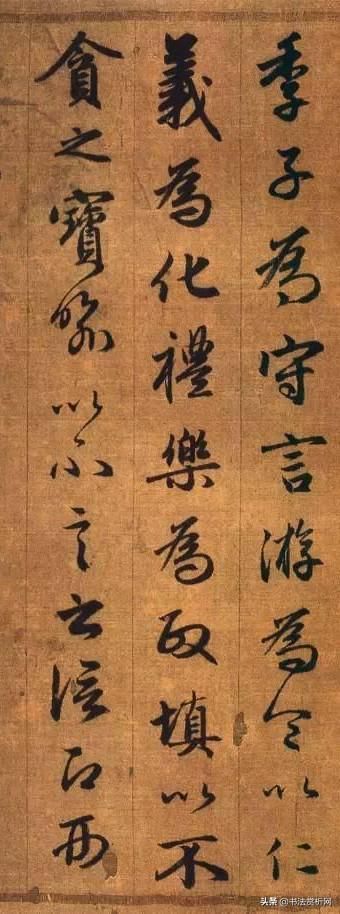 季子為守言游為令以仁
義為化禮樂為政填以不
貪之寶喻以不言之信召西
头条 @书法赏析网